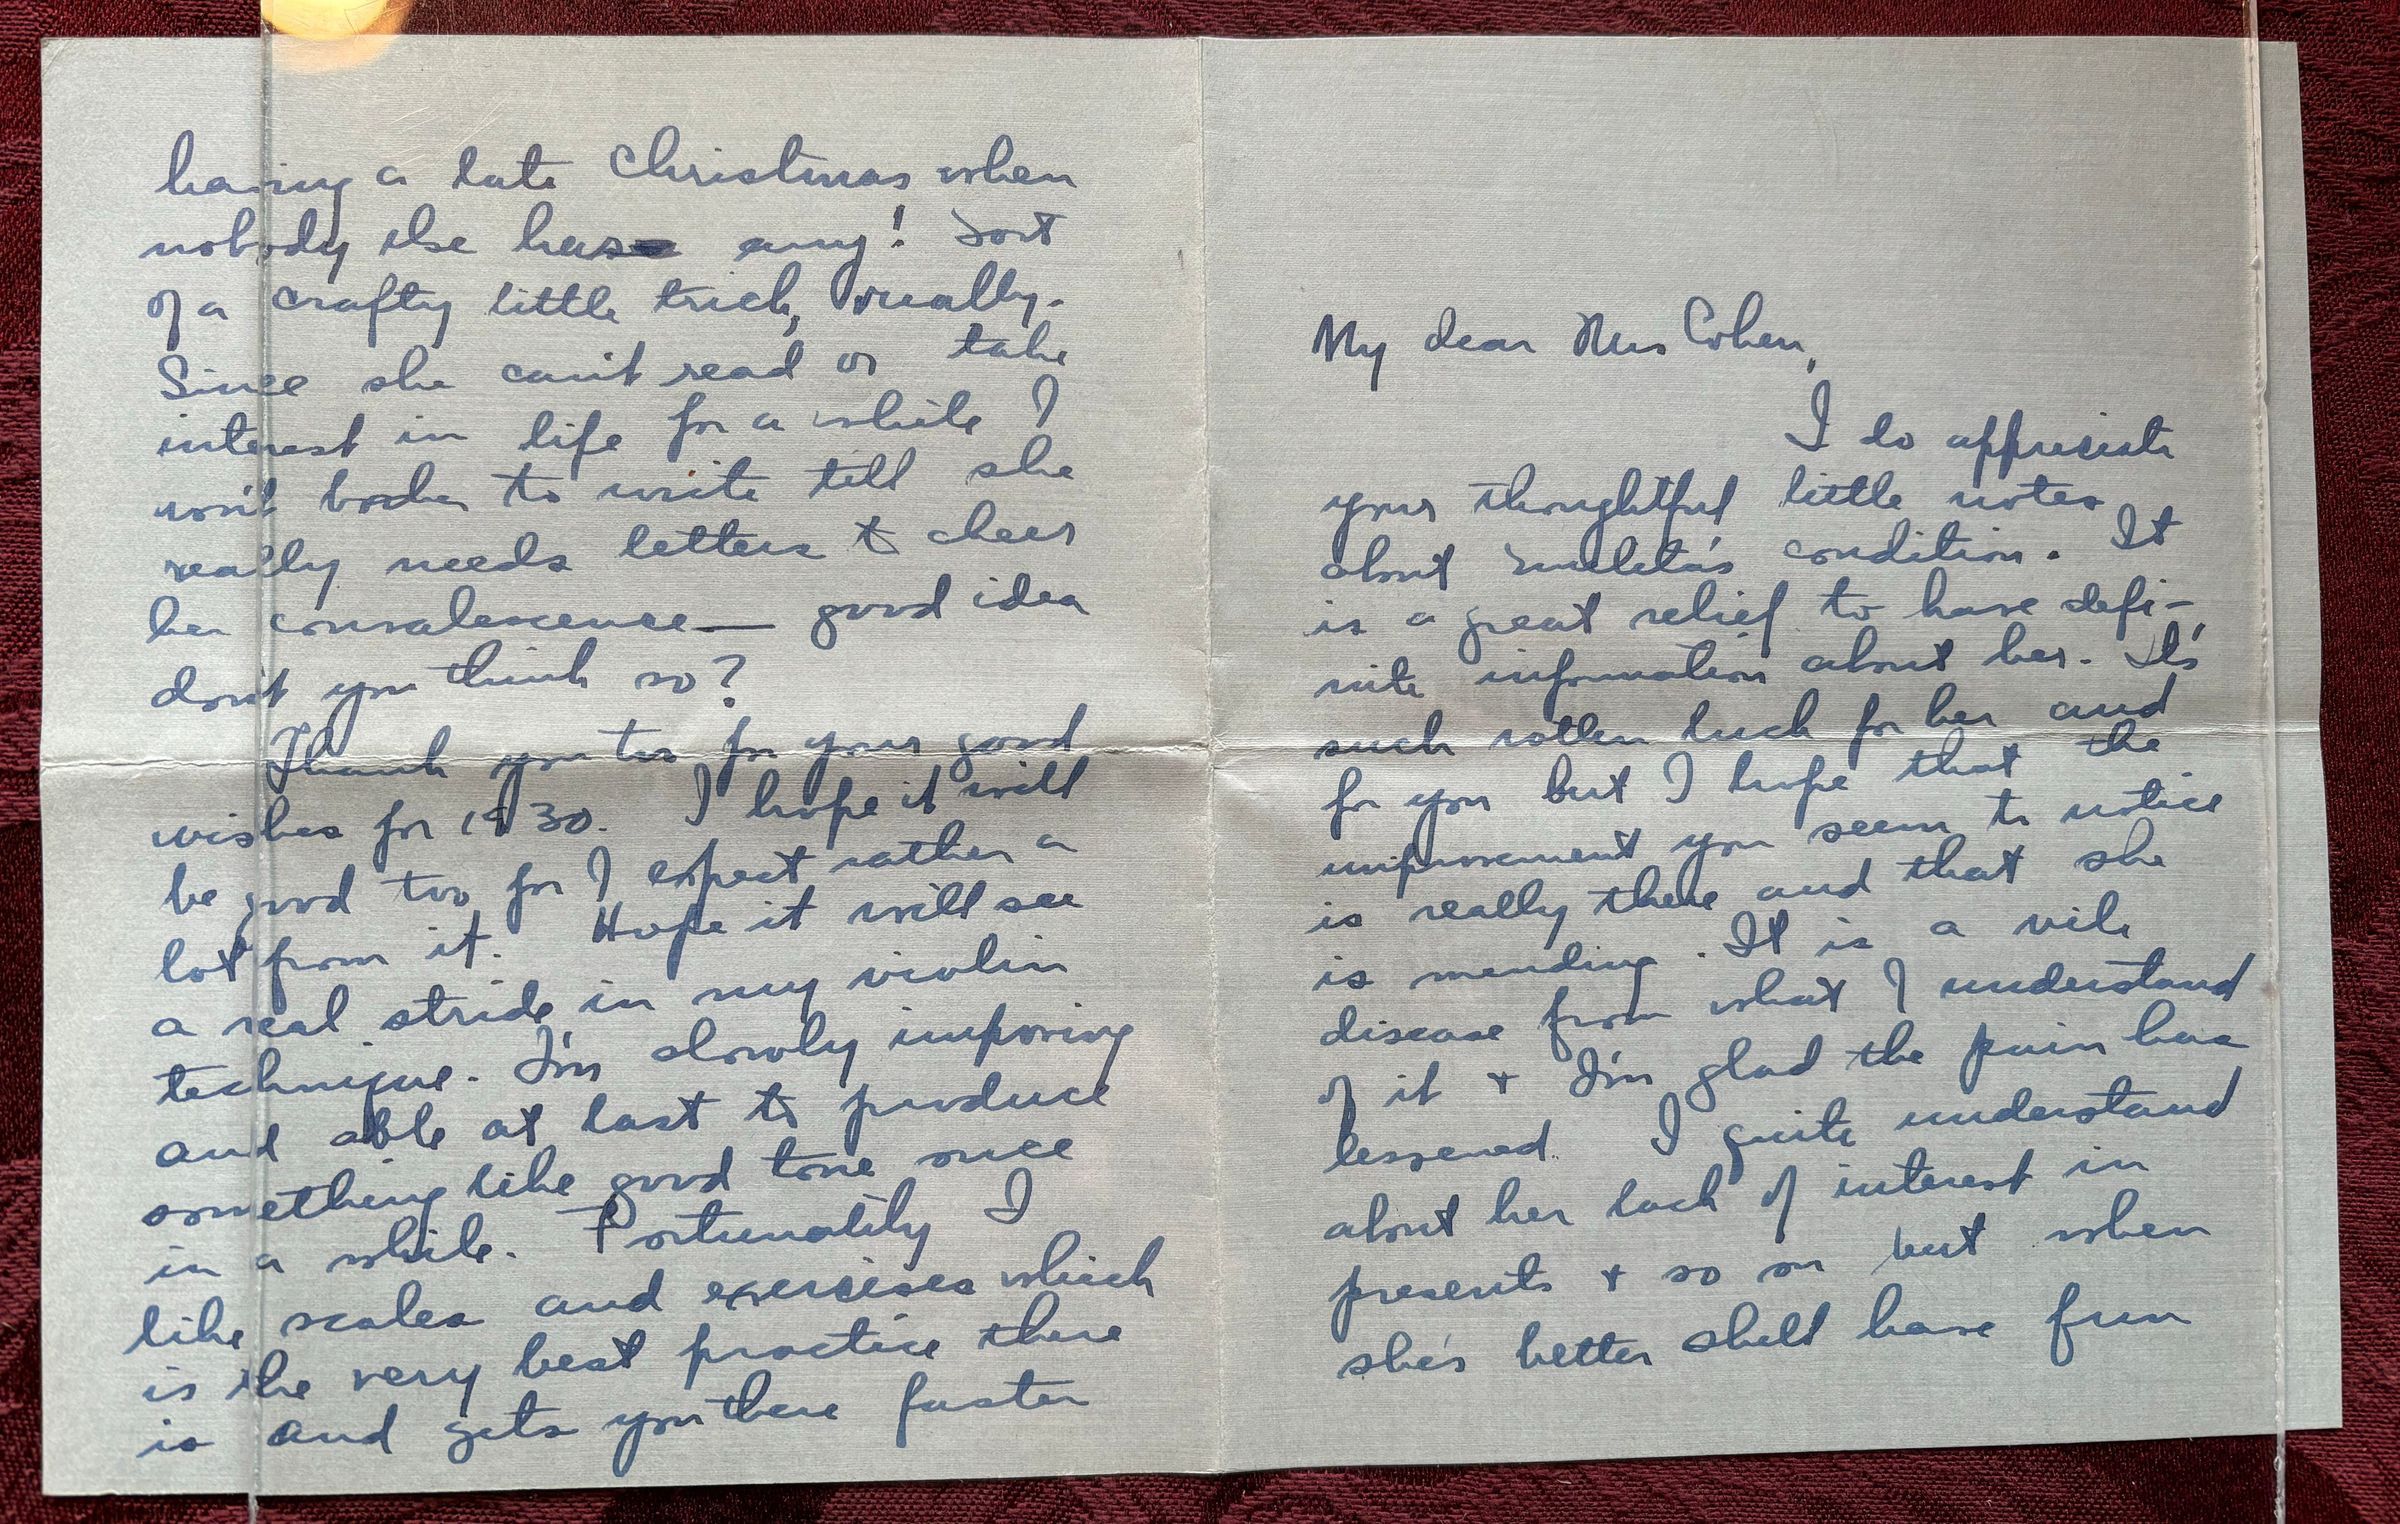 My dear Mrs Cohen,
I do appreciate
your thoughtful little notes
about condition. It
is a great relief to have defi-
nite information about her. It's
such rotten luck for her and
for you but I hope that the
improvement you seem to notice
is really there and that she
is mending. It is a vile
disease from what I understand
of it + I'm glad the pain has
lessened. I quite understand
about her lack of interest in
presents + so on but when
she's better shell have fun
having a late Christmas when
nobody else has any! Sort
of a crafty little trick, really.
Since she can't read or take
interest in life for a while I
won't bother to write till she
really needs letters to cheer
her convalescence — good idea
don't you think so?
Thank you too for your good
wishes for 1930. I hope it will
be good too for I expect rather a
lot from it. Hope it will see
a real stride in my violin
technique. I'm slowly improving
and able at last to produce
something like good tone once
in a while. Fortunately I
like scales and exercises which
is the very best practice there
is and gets you there faster